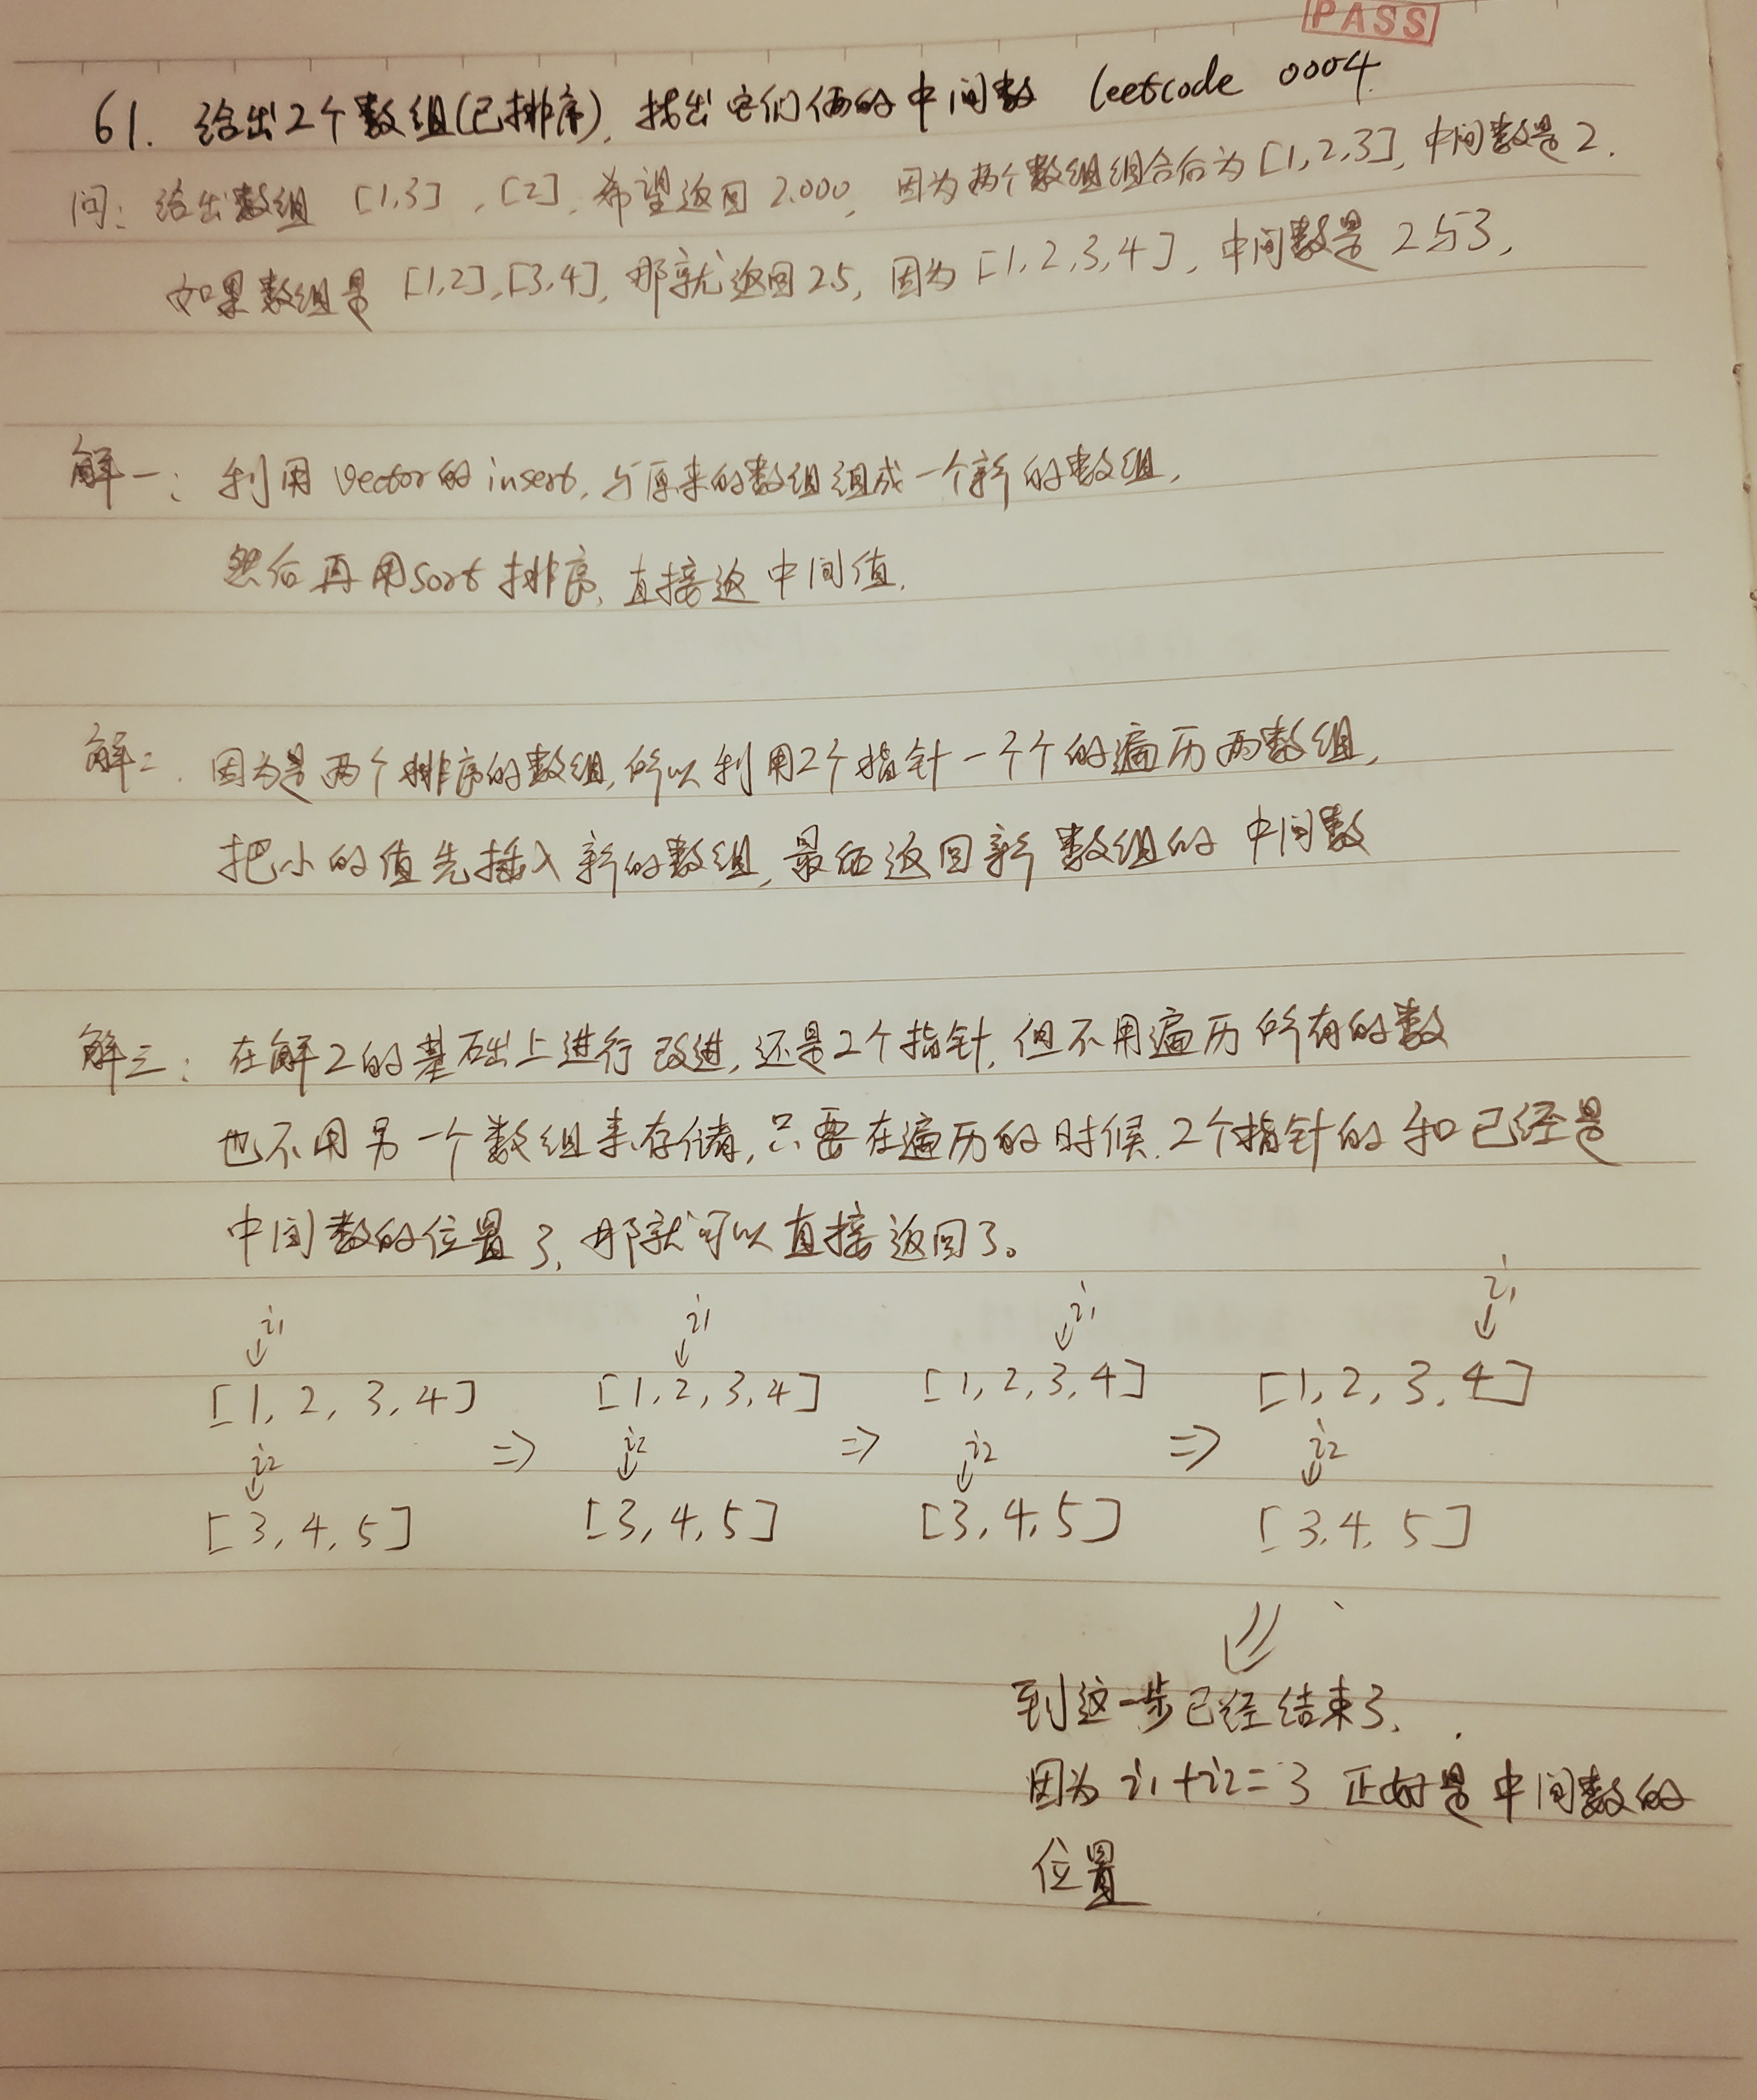 PASS
61. 给出2个数组(已排序), 找出它们俩的中间数 leetcode 0004.
问: 给出数组 [1,3], [2], 希望返回 2.000, 因为两个数组组合后为 [1,2,3], 中间数是2.
如果数组是 [1,2],[3,4], 那就返回2.5, 因为 [1,2,3,4], 中间数是 2与3,
解一: 利用 vector的 insert, 与原来的数组组成一个新的数组,
然后再用sort 排序, 直接返中间值.
解二. 因为是两个排序的数组, 所以利用2个指针一个个的遍历两数组,
把小的值先插入新的数组, 最后返回新数组的中间数
解三: 在解2的基础上进行改进, 还是2个指针, 但不用遍历所有的数
也不用另一个数组来存储, 只要在遍历的时候, 2个指针的和已经是
中间数的位置了, 那就可以直接返回了。
i1 i1 i1 i1
↓ ↓ ↓ ↓
[1, 2, 3, 4] [1, 2, 3, 4] [1, 2, 3, 4] [1, 2, 3, 4]
i2 ⇒ i2 ⇒ i2 ⇒ i2
↓ ↓ ↓ ↓
[3, 4, 5] [3, 4, 5] [3, 4, 5] [3, 4, 5]
到这一步已经结束了,
因为 i1+i2=3 正好是中间数的
位置